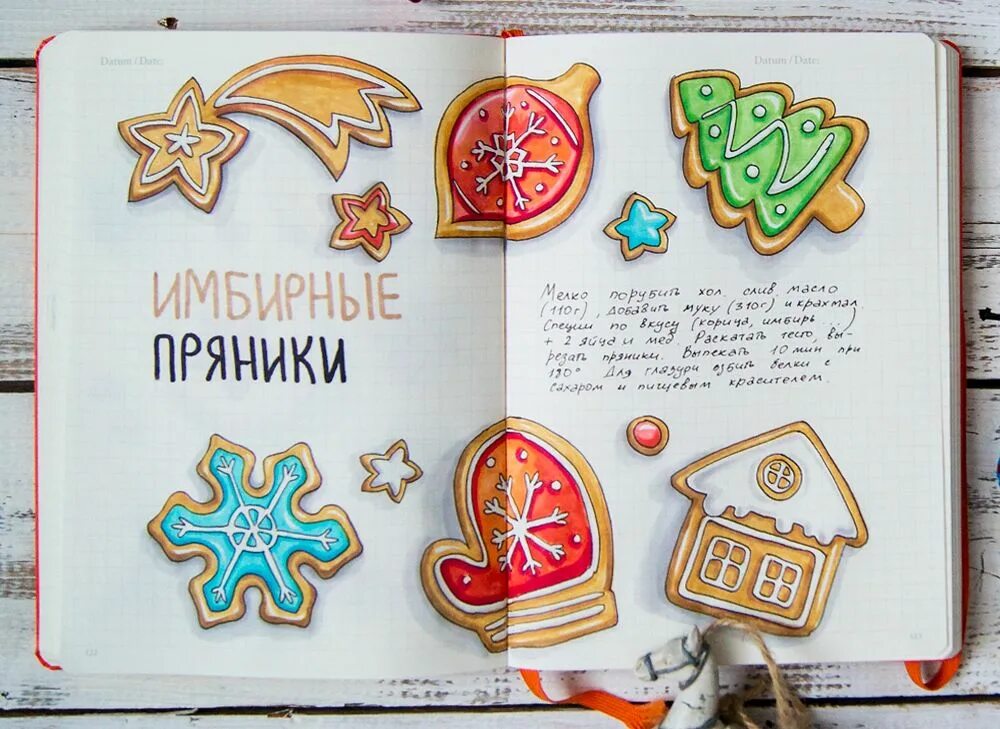 Datum / Date:
ИМБИРНЫЕ
ПРЯНИКИ
122
Datum / Date:
Мелко порубить хол. слив. масло
(110г), добавить муку (310г) и крахмал
Специи по вкусу (корица, имбирь ...)
+ 2 яйца и мёд. Раскатать тесто, вы-
резать пряники. Выпекать 10 мин при
180° Для глазури взбить белки с
сахаром и пищевым красителем.
123